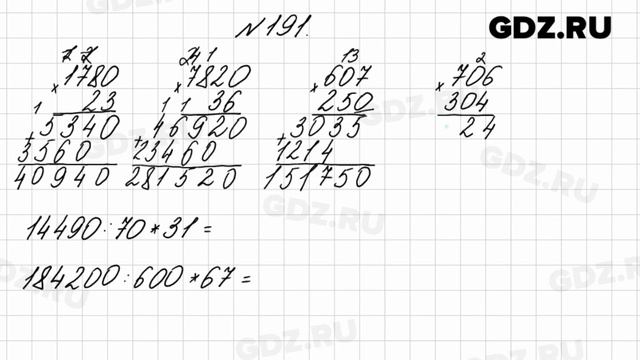 №191.
GDZ.RU
2 2
× 1780
23
1
+ 5340
3560
40940
2 4 1
× 7820
1 36
1
+ 46920
23460
281520
13
× 607
250
+ 3035
1214
151750
2
× 706
304
24
14490:70*31=
184200:600*67=
GDZ.RU
GDZ.RU
GDZ.RU
GDZ.RU